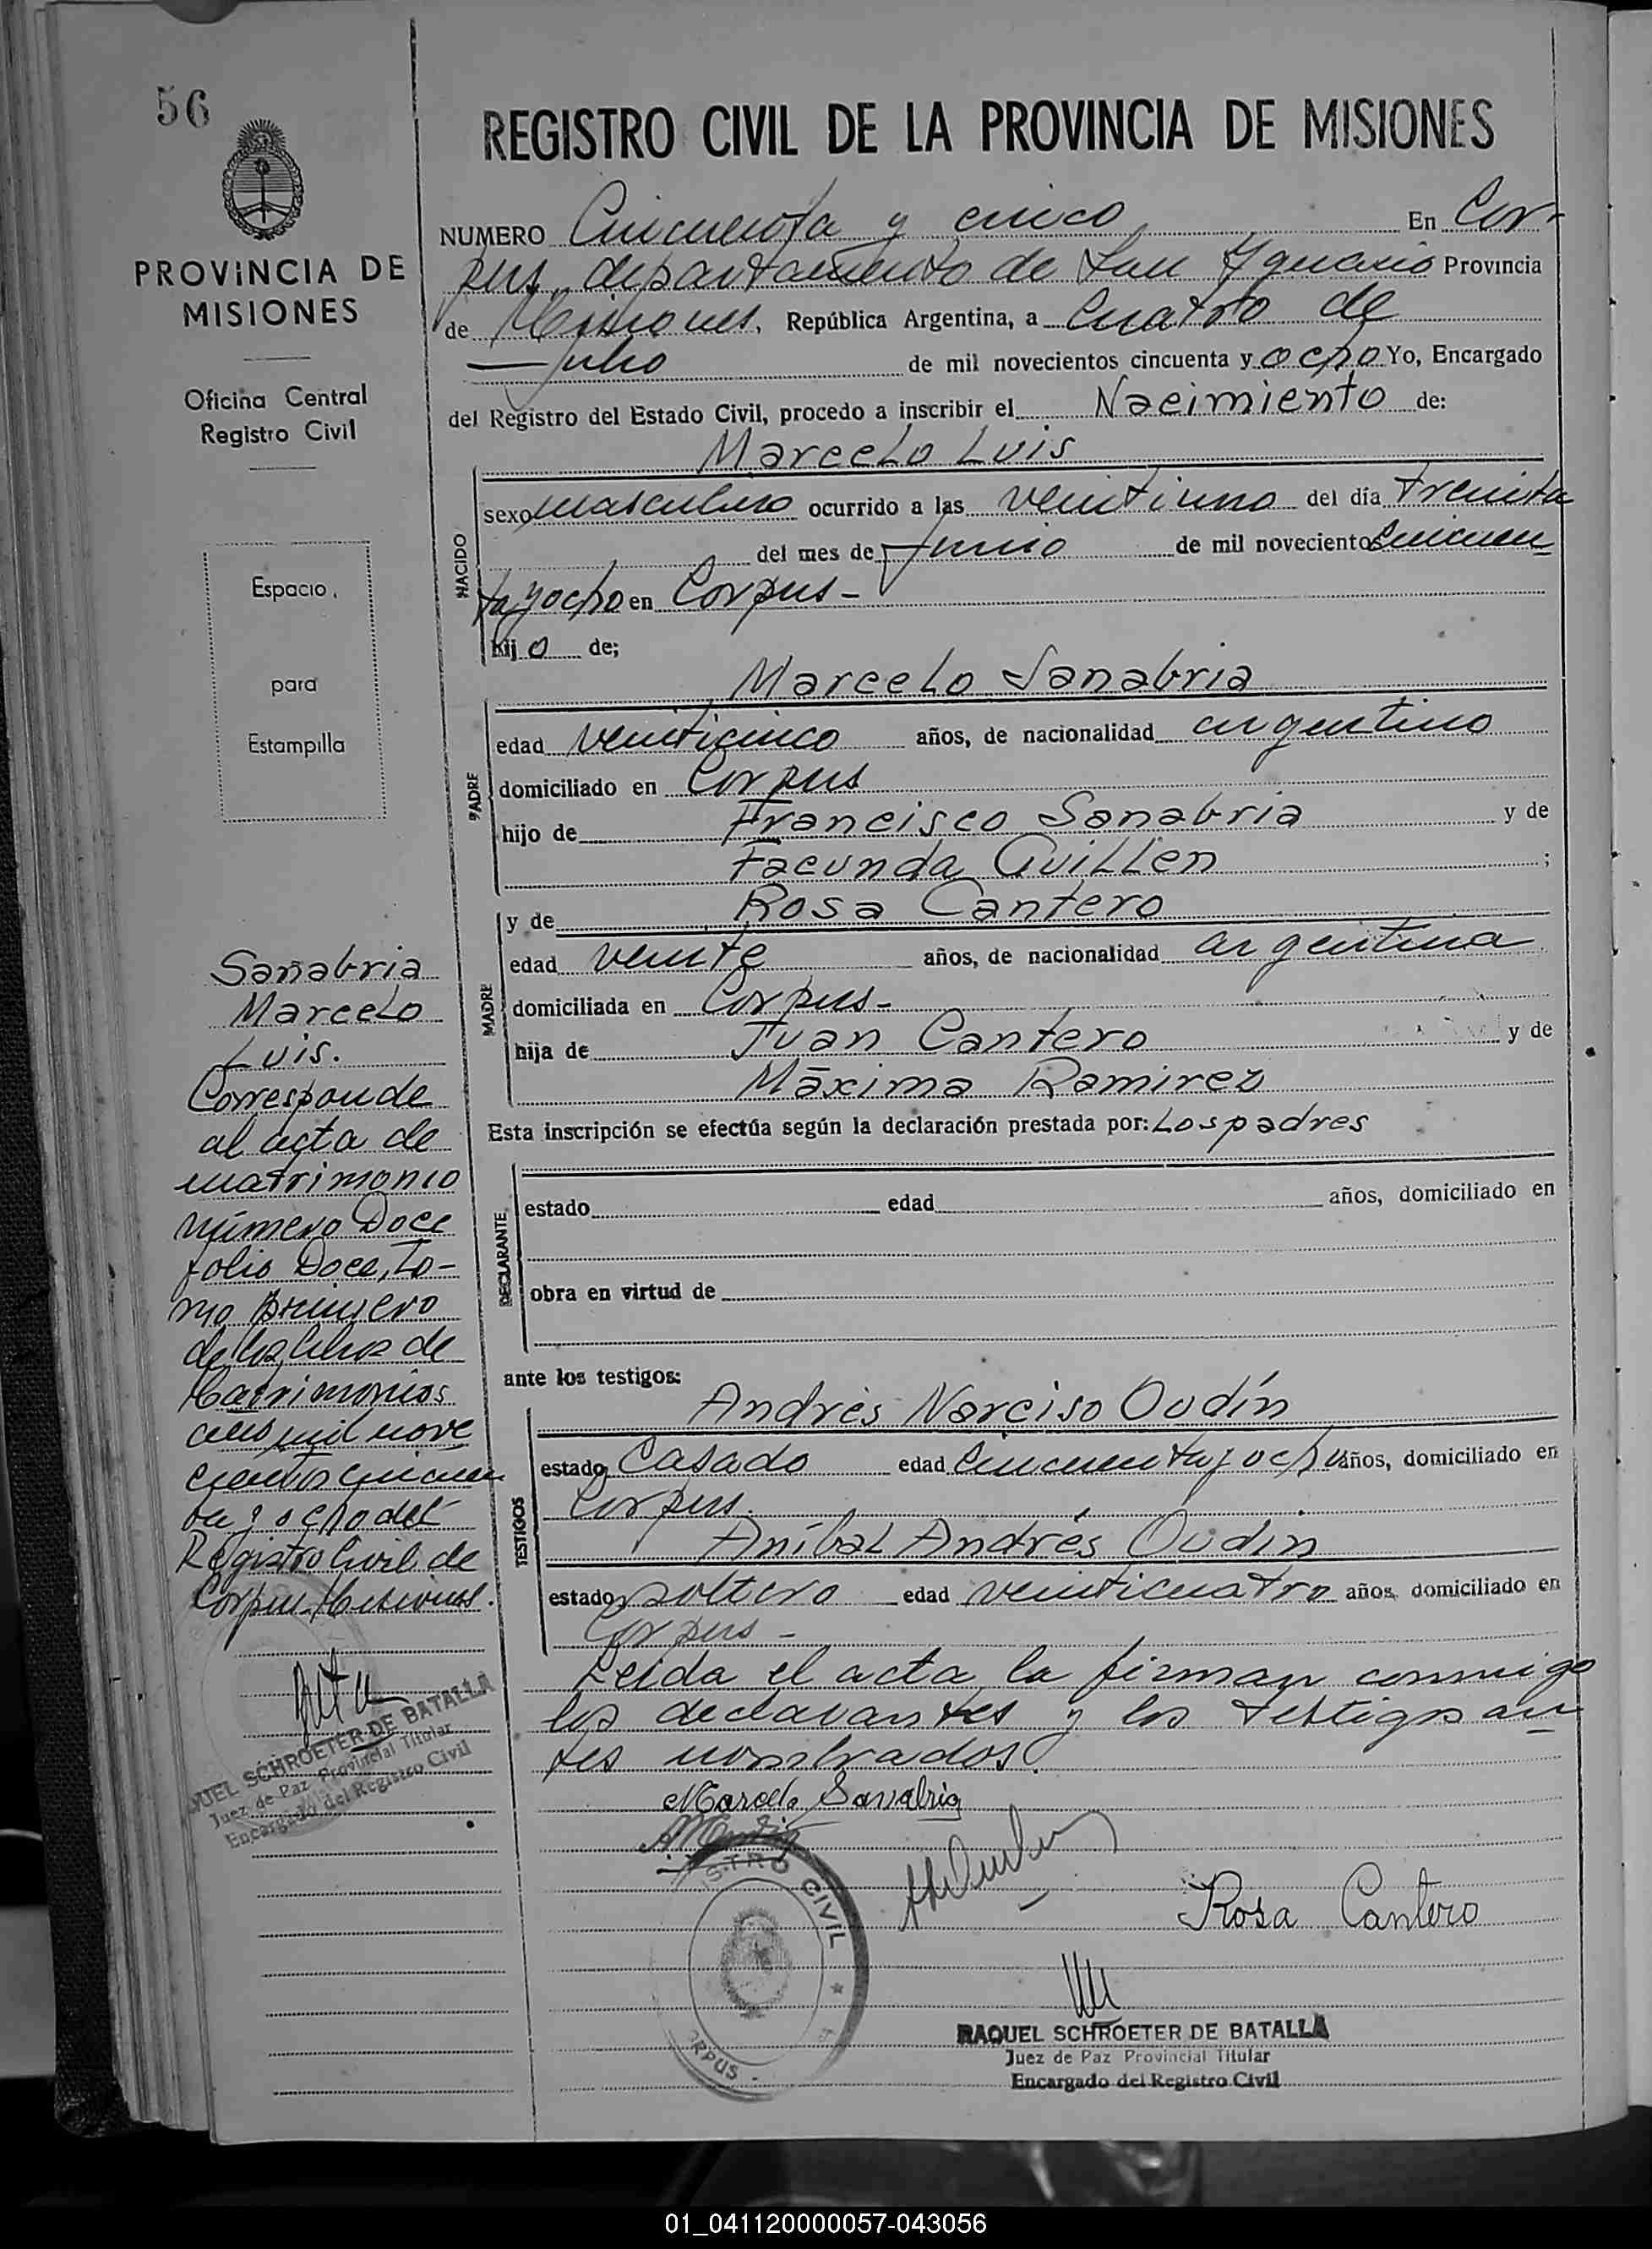 56
REGISTRO CIVIL DE LA PROVINCIA DE MISIONES
PROVINCIA DE
MISIONES
Oficina Central
Registro Civil
Espacio
para
Estampilla
NUMERO Cincuenta y cinco En Cor-
pus, departamento de San Ygnacio Provincia
de Misiones, República Argentina, a cuatro de
Julio de mil novecientos cincuenta y ocho Yo, Encargado
del Registro del Estado Civil, procedo a inscribir el Nacimiento de:
Marcelo Luis
NACIDO
sexo masculino ocurrido a las veintiuno del día Treinta
del mes de Junio de mil novecientos cincuen
ta y ocho en Corpus-
hijo de;
Marcelo Sanabria
PADRE
edad veinticinco años, de nacionalidad argentino
domiciliado en Corpus
hijo de Francisco Sanabria y de
Facunda Guillen ;
y de Rosa Cantero
MADRE
edad veinte años, de nacionalidad argentina
domiciliada en Corpus-
hija de Juan Cantero y de
Máxima Ramirez
Esta inscripción se efectúa según la declaración prestada por: Los padres
DECLARANTE
estado edad años, domiciliado en
obra en virtud de
ante los testigos:
Andrés Narciso Oudín
TESTIGOS
estado Casado edad cincuenta y ocho años, domiciliado en
Corpus.
Aníbal Andrés Oudin
estado soltero edad veinticuatro años, domiciliado en
Corpus -
Leida el acta, la firman conmigo
los declarantes y los testigos an
tes nombrados.
Marcelo Sanabria
Rosa Cantero
ISTRO CIVIL
ORPUS
RAQUEL SCHROETER DE BATALLA
Juez de Paz Provincial Titular
Encargado del Registro Civil
Sanabria
Marcelo
Luis.
Corresponde
al acta de
matrimonio
número Doce
folio Doce, to-
mo primero
de los libros de
Matrimonios
año mil nove
cientos cincuen
ta y ocho del
Registro Civil de
Corpus. Misiones.
QUEL SCHROETER DE BATALLA
Juez de Paz Provincial Titular
Encargado del Registro Civil
01_041120000057-043056